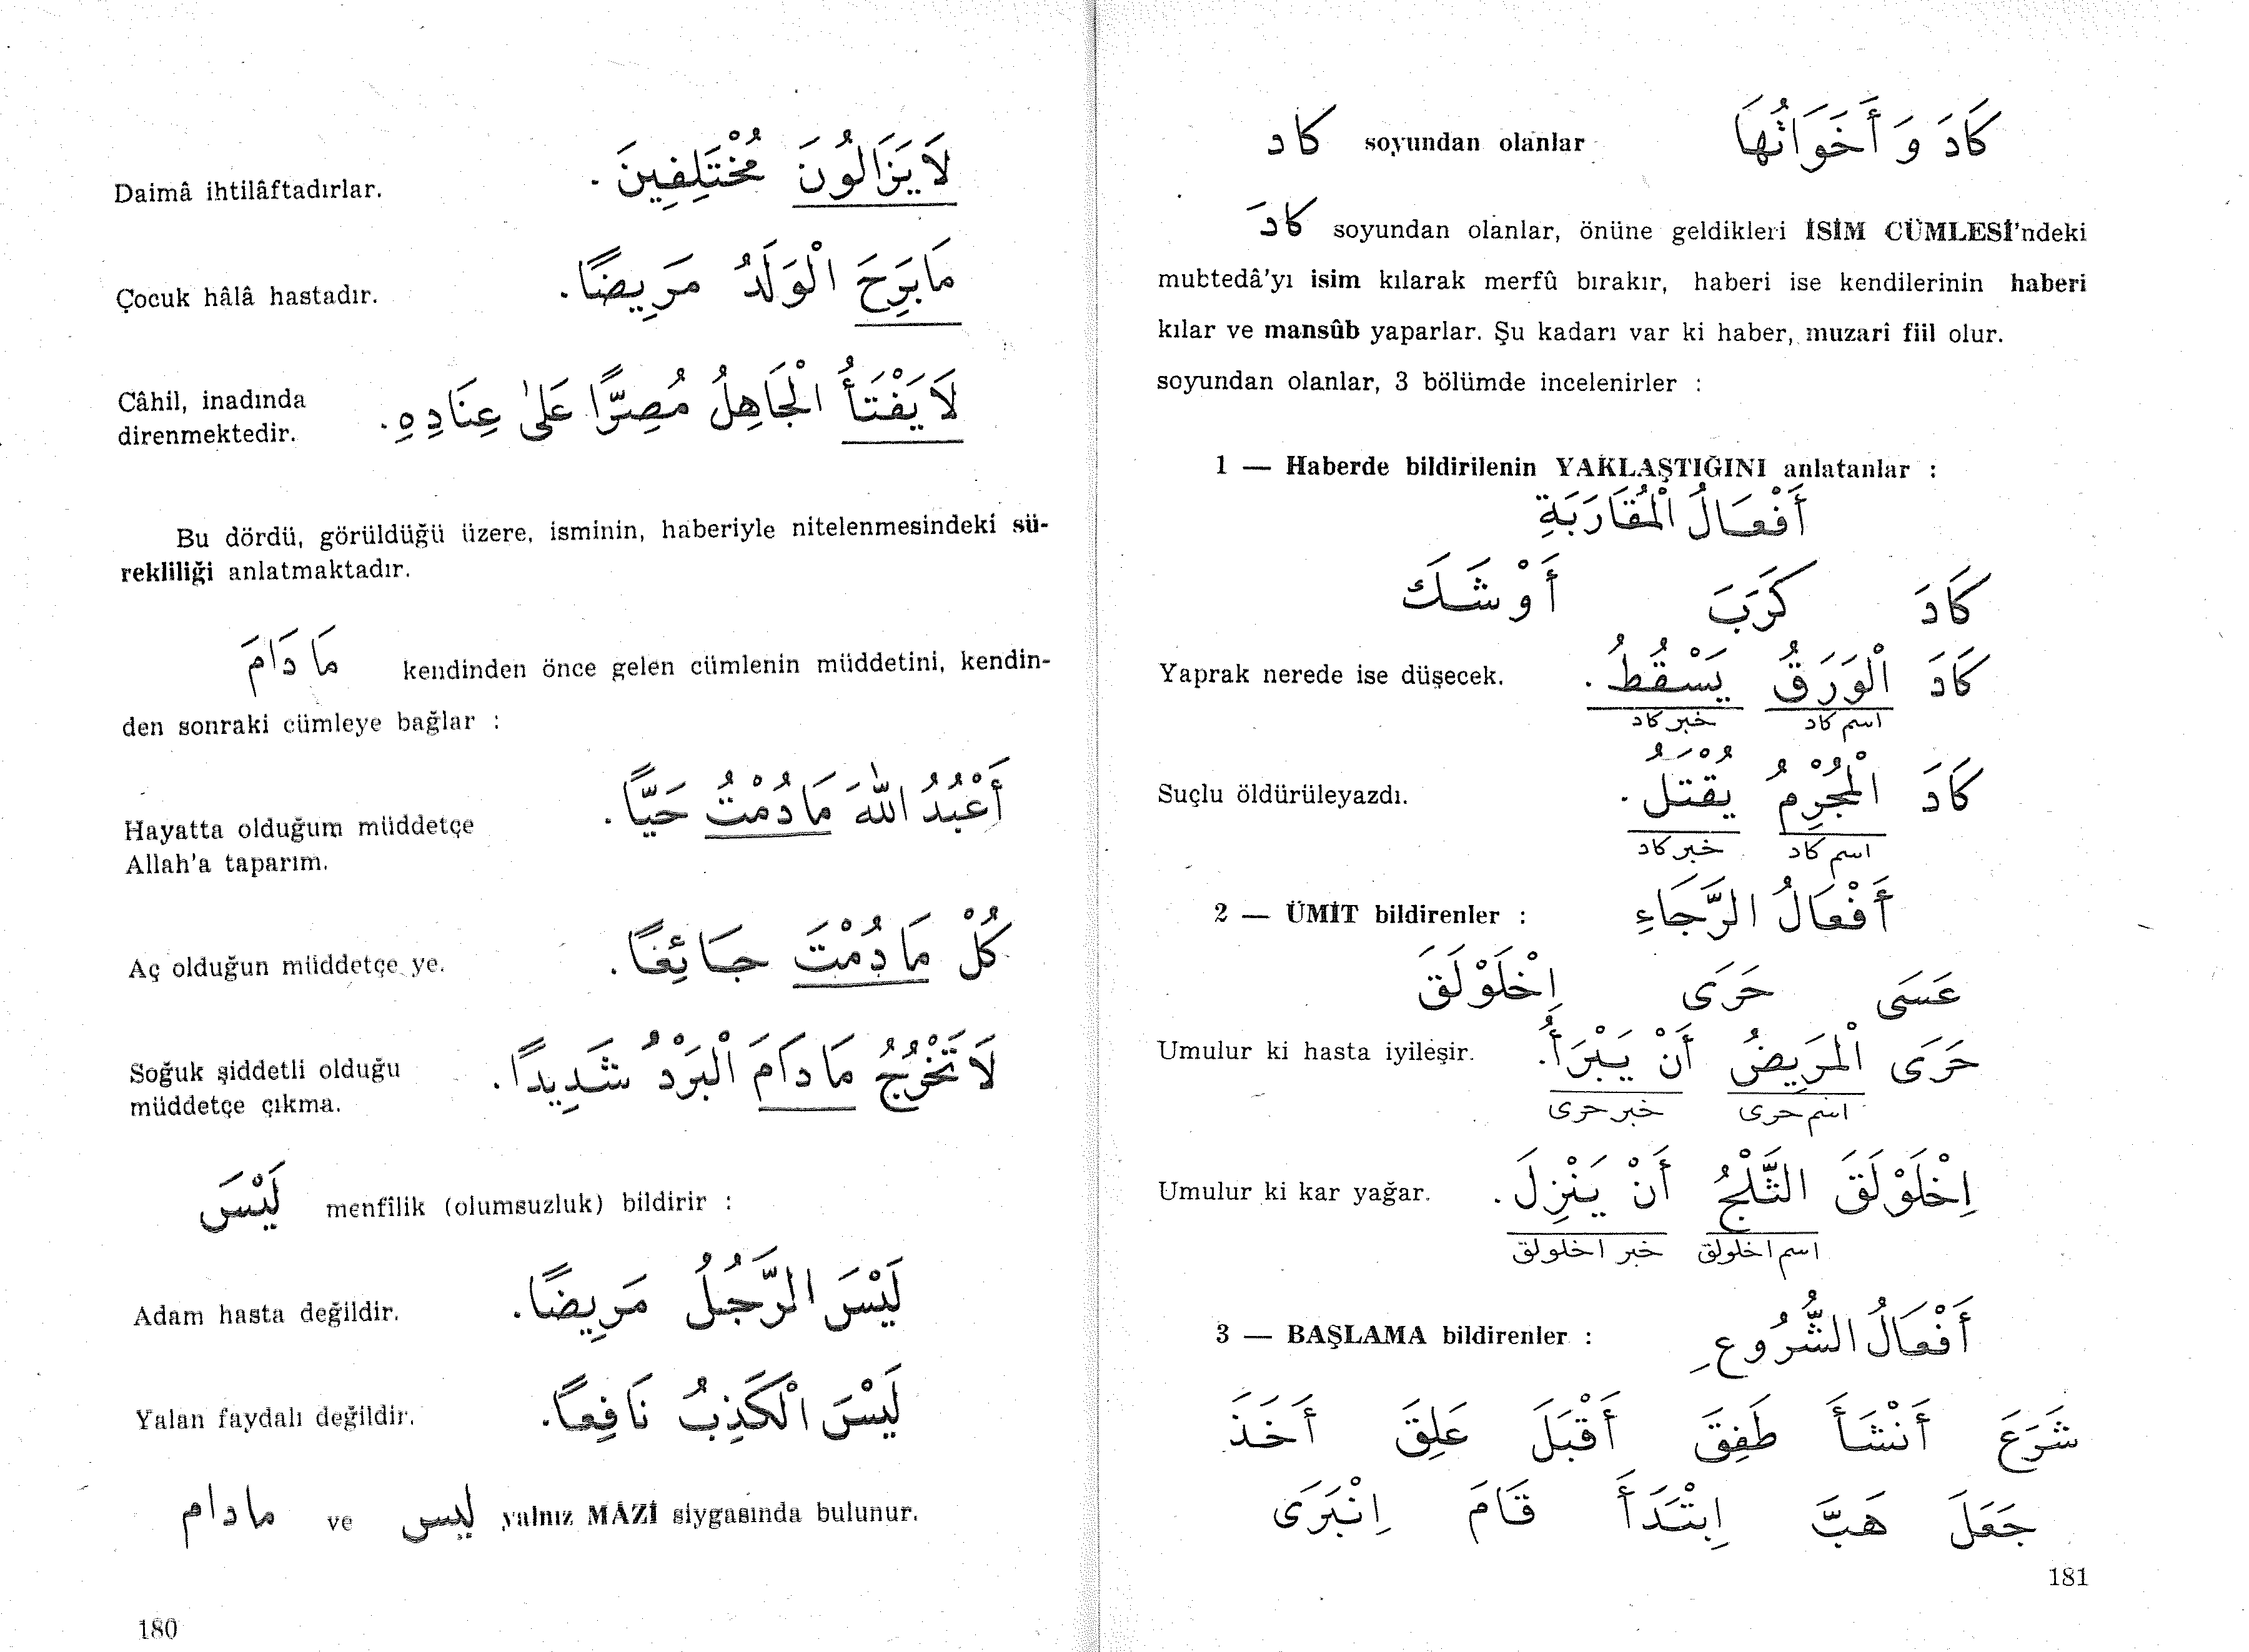 Daimâ ihtilâftadırlar. لَا يَزَالُونَ مُخْتَلِفِينَ .
Çocuk hâlâ hastadır. مَا بَرِحَ الْوَلَدُ مَرِيضًا .
Câhil, inadında
direnmektedir. لَا يَفْتَأُ الْجَاهِلُ مُصِرًّا عَلَىٰ عِنَادِهِ .
Bu dördü, görüldüğü üzere, isminin, haberiyle nitelenmesindeki sü-
rekliliği anlatmaktadır.
مَا دَامَ kendinden önce gelen cümlenin müddetini, kendin-
den sonraki cümleye bağlar :
Hayatta olduğum müddetçe
Allah'a taparım. أَعْبُدُ اللّٰهَ مَا دُمْتُ حَيًّا .
Aç olduğun müddetçe ye. كُلْ مَا دُمْتَ جَائِعًا .
Soğuk şiddetli olduğu
müddetçe çıkma. لَا تَخْرُجْ مَا دَامَ الْبَرْدُ شَدِيدًا .
لَيْسَ menfîlik (olumsuzluk) bildirir :
Adam hasta değildir. لَيْسَ الرَّجُلُ مَرِيضًا .
Yalan faydalı değildir. لَيْسَ الْكَذِبُ نَافِعًا .
مادام ve ليس yalnız MÂZİ siygasında bulunur.
180
كاد soyundan olanlar كَادَ وَ أَخَوَاتُهَا
كادَ soyundan olanlar, önüne geldikleri İSİM CÜMLESİ'ndeki
mubtedâ'yı isim kılarak merfû bırakır, haberi ise kendilerinin haberi
kılar ve mansûb yaparlar. Şu kadarı var ki haber, muzari fiil olur.
soyundan olanlar, 3 bölümde incelenirler :
1 — Haberde bildirilenin YAKLAŞTIĞINI anlatanlar :
أَفْعَالُ الْمُقَارَبَةِ
كَادَ كَرَبَ أَوْشَكَ
Yaprak nerede ise düşecek. كَادَ الْوَرَقُ يَسْقُطُ .
اسم كاد خبر كاد
Suçlu öldürüleyazdı. كَادَ الْمُجْرِمُ يُقْتَلُ .
اسم كاد خبر كاد
2 — ÜMİT bildirenler : أَفْعَالُ الرَّجَاءِ
عَسَى حَرَى اِخْلَوْلَقَ
Umulur ki hasta iyileşir. حَرَى الْمَرِيضُ أَنْ يَبْرَأَ .
اسم حرى خبر حرى
Umulur ki kar yağar. اِخْلَوْلَقَ الثَّلْجُ أَنْ يَنْزِلَ .
اسم اخلولق خبر اخلولق
3 — BAŞLAMA bildirenler : أَفْعَالُ الشُّرُوعِ
شَرَعَ أَنْشَأَ طَفِقَ أَقْبَلَ عَلِقَ أَخَذَ
جَعَلَ هَبَّ اِبْتَدَأَ قَامَ اِنْبَرَى
181